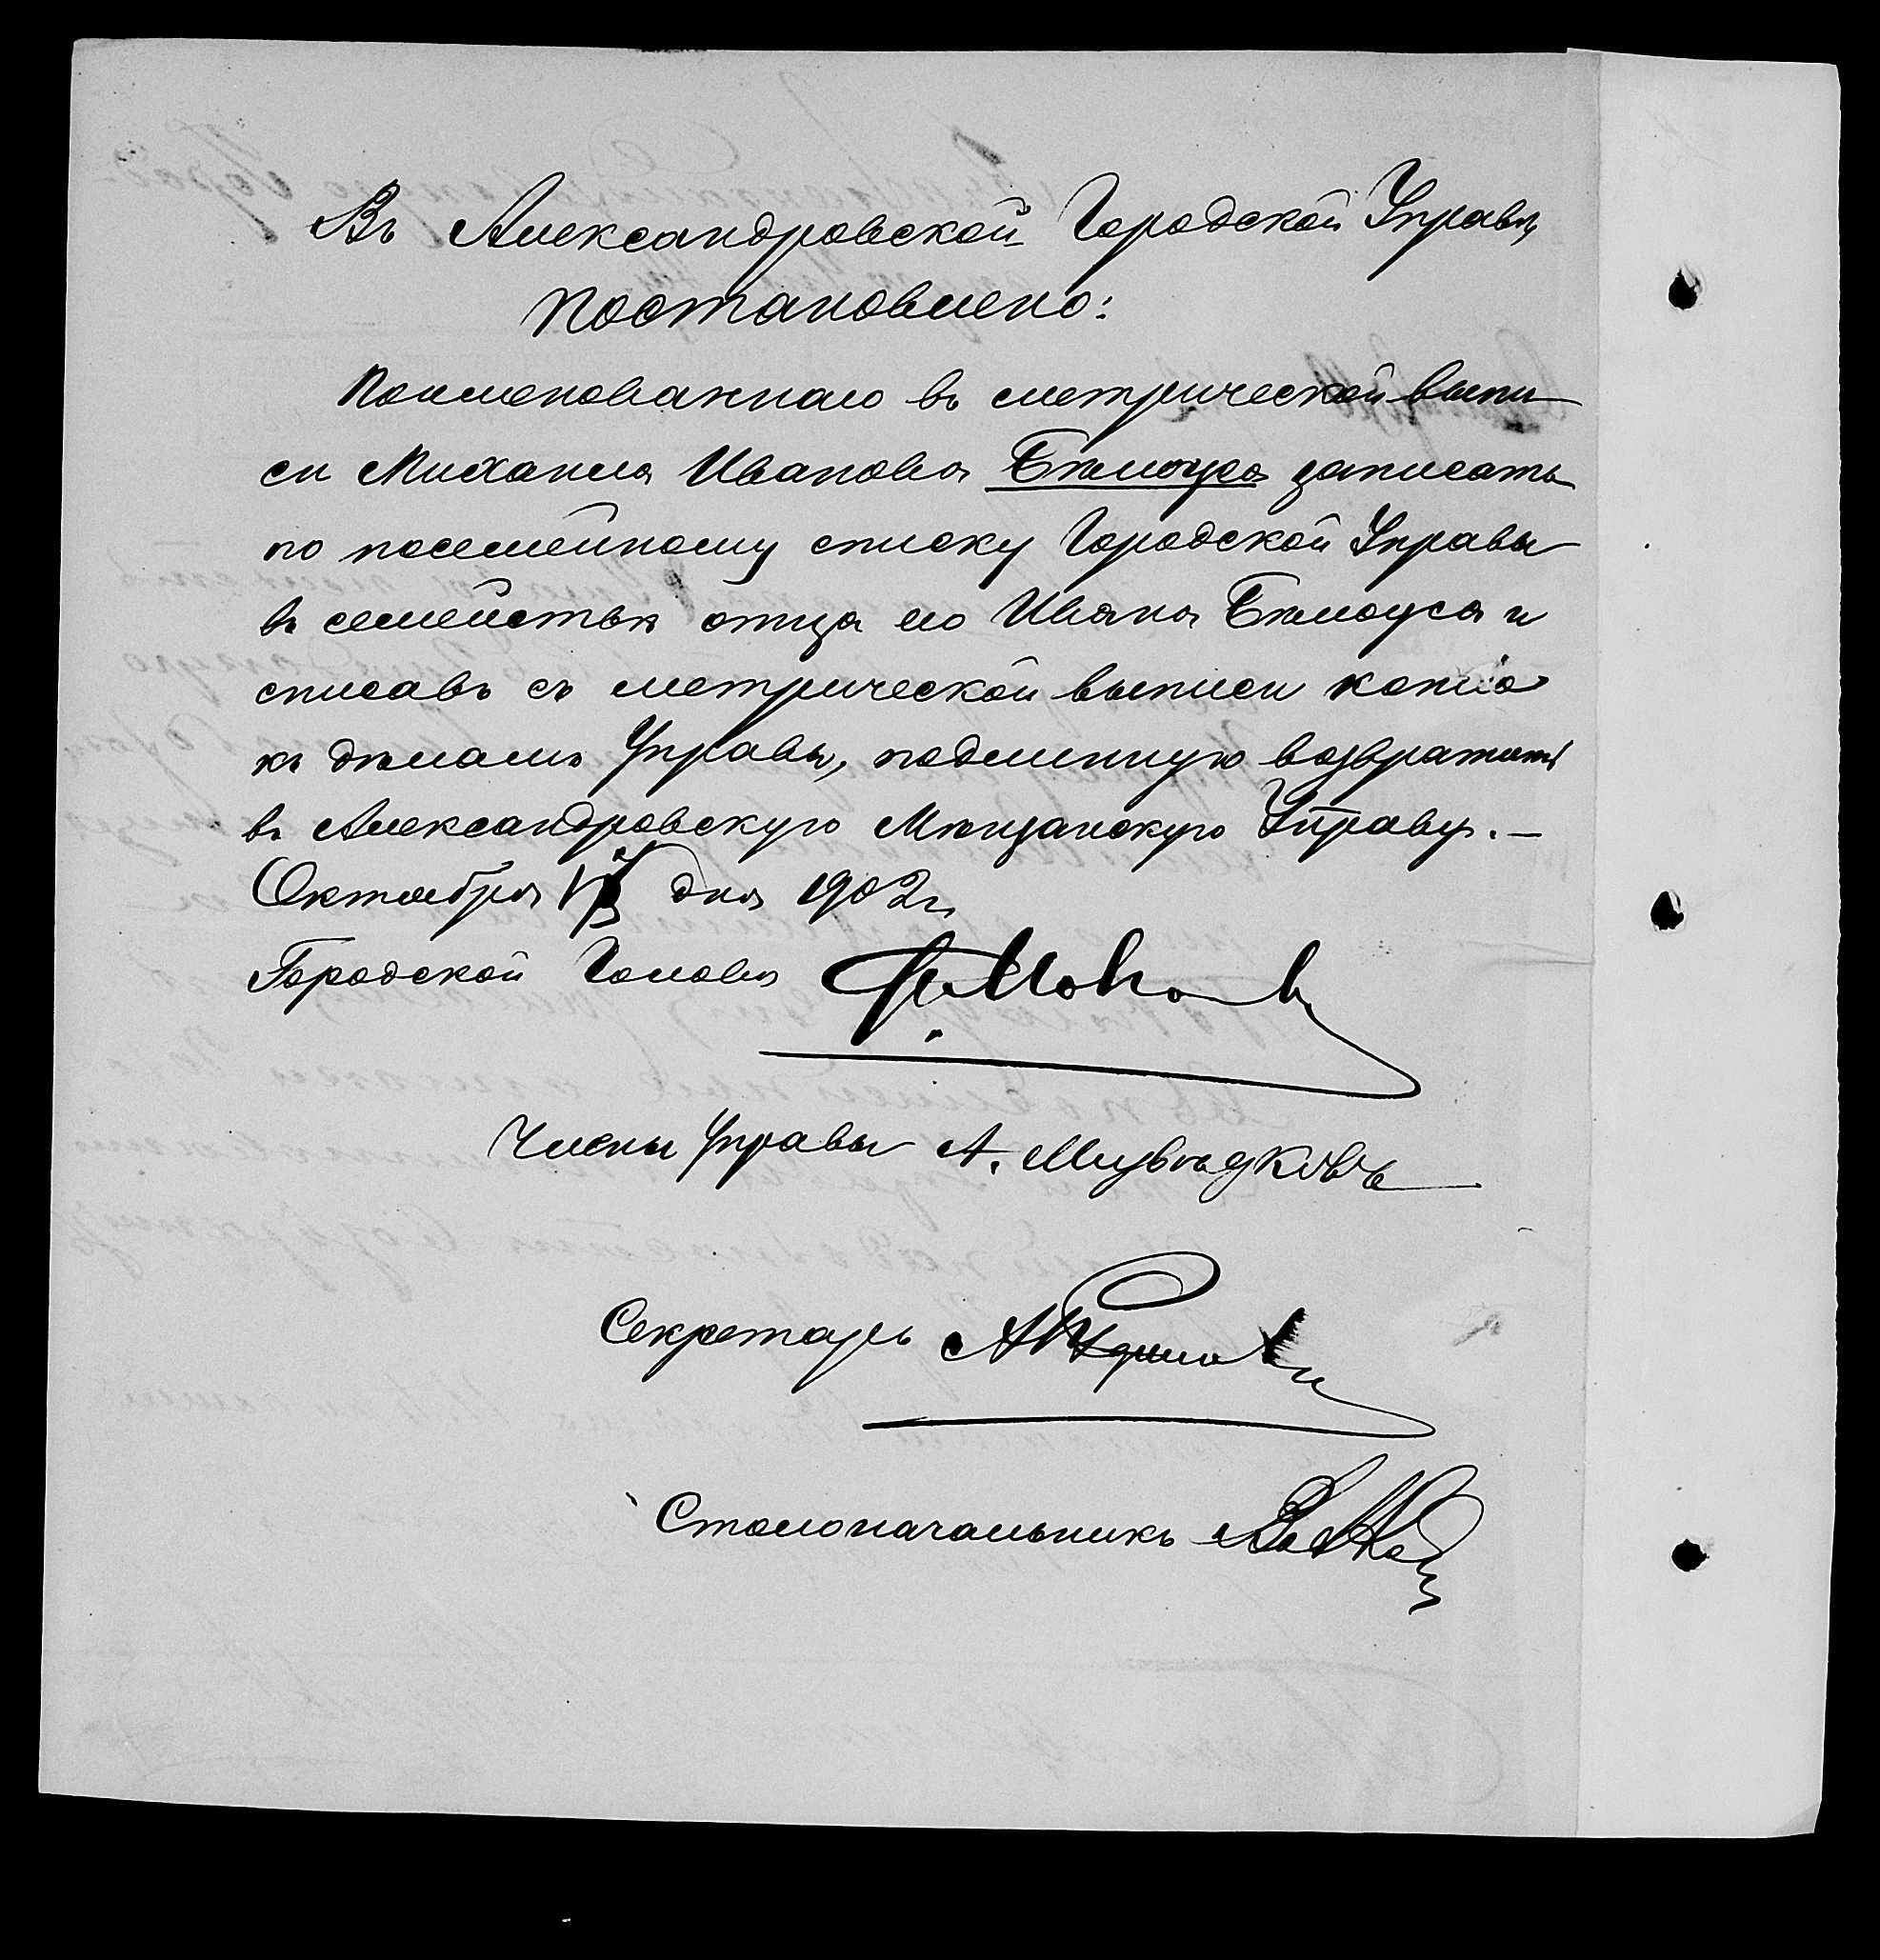 Въ Александровской Городской Управѣ
постановлено:
Поименованнаго въ метрической выпи
си Михаила Иванова Бѣлоуса записать
по посемейному списку Городской Управы
въ семействѣ отца его Ивана Бѣлоуса и
списавъ съ метрической выписи копію
къ дѣламъ Управы, подлинную возвратить
въ Александровскую Мѣщанскую Управу. —
Октября дня 1902 г.
Городской Голова
Члены Управы А.
Секретарь
Столоначальникъ